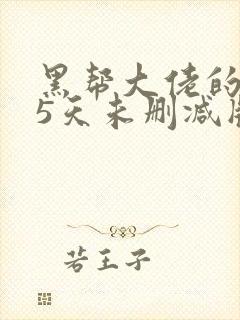 黑帮大佬的
5天未删减版
若王子